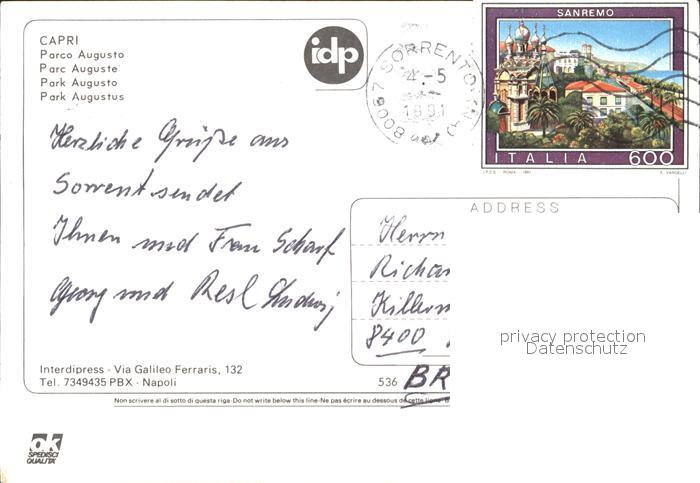 CAPRI
Parco Augusto
Parc Auguste
Park Augusto
Park Augustus
idp
80067 SORRENTO
4.-5
1991
SANREMO
ITALIA 600
I.P.Z.S. - ROMA - 1991 E. VANGELLI
Herzliche Grüße aus
Sorrent sendet
Ihnen und Frau Scharf
Georg und Resl Ludwig
ADDRESS
Herrn
Richar
Killerm
8400
BR
privacy protection
Datenschutz
Interdipress - Via Galileo Ferraris, 132
Tel. 7349435 PBX - Napoli
536
Non scrivere al di sotto di questa riga-Do not write below this line-Ne pas écrire au dessous de cette ligne-B
ok
SPEDISCI
QUALITA'